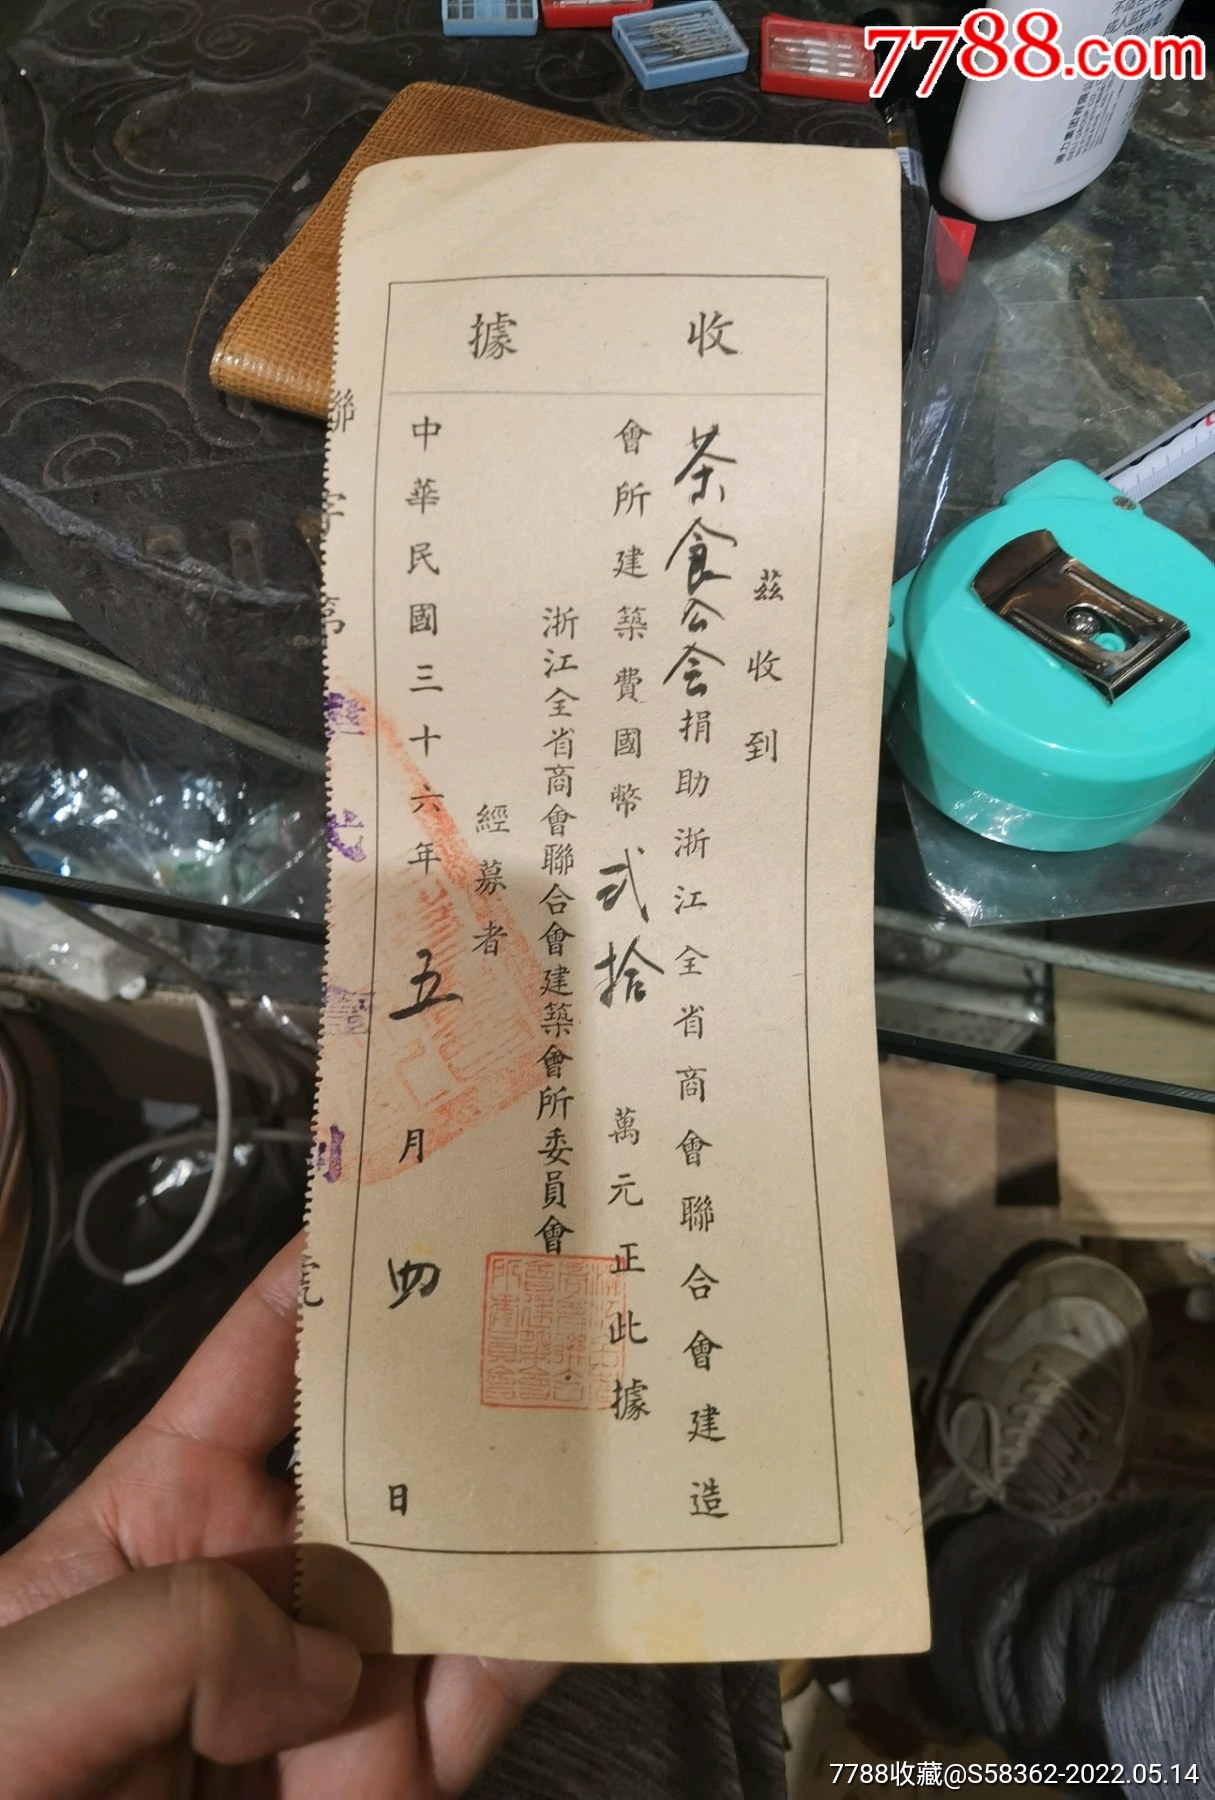 7788.com
收據
茲收到
茶食公会捐助浙江全省商會聯合會建造
會所建築費國幣弍拾萬元正此據
浙江全省商會聯合會建築會所委員會
經募者
中華民國三十六年五月四日
聯字第
號
7788收藏@S58362-2022.05.14